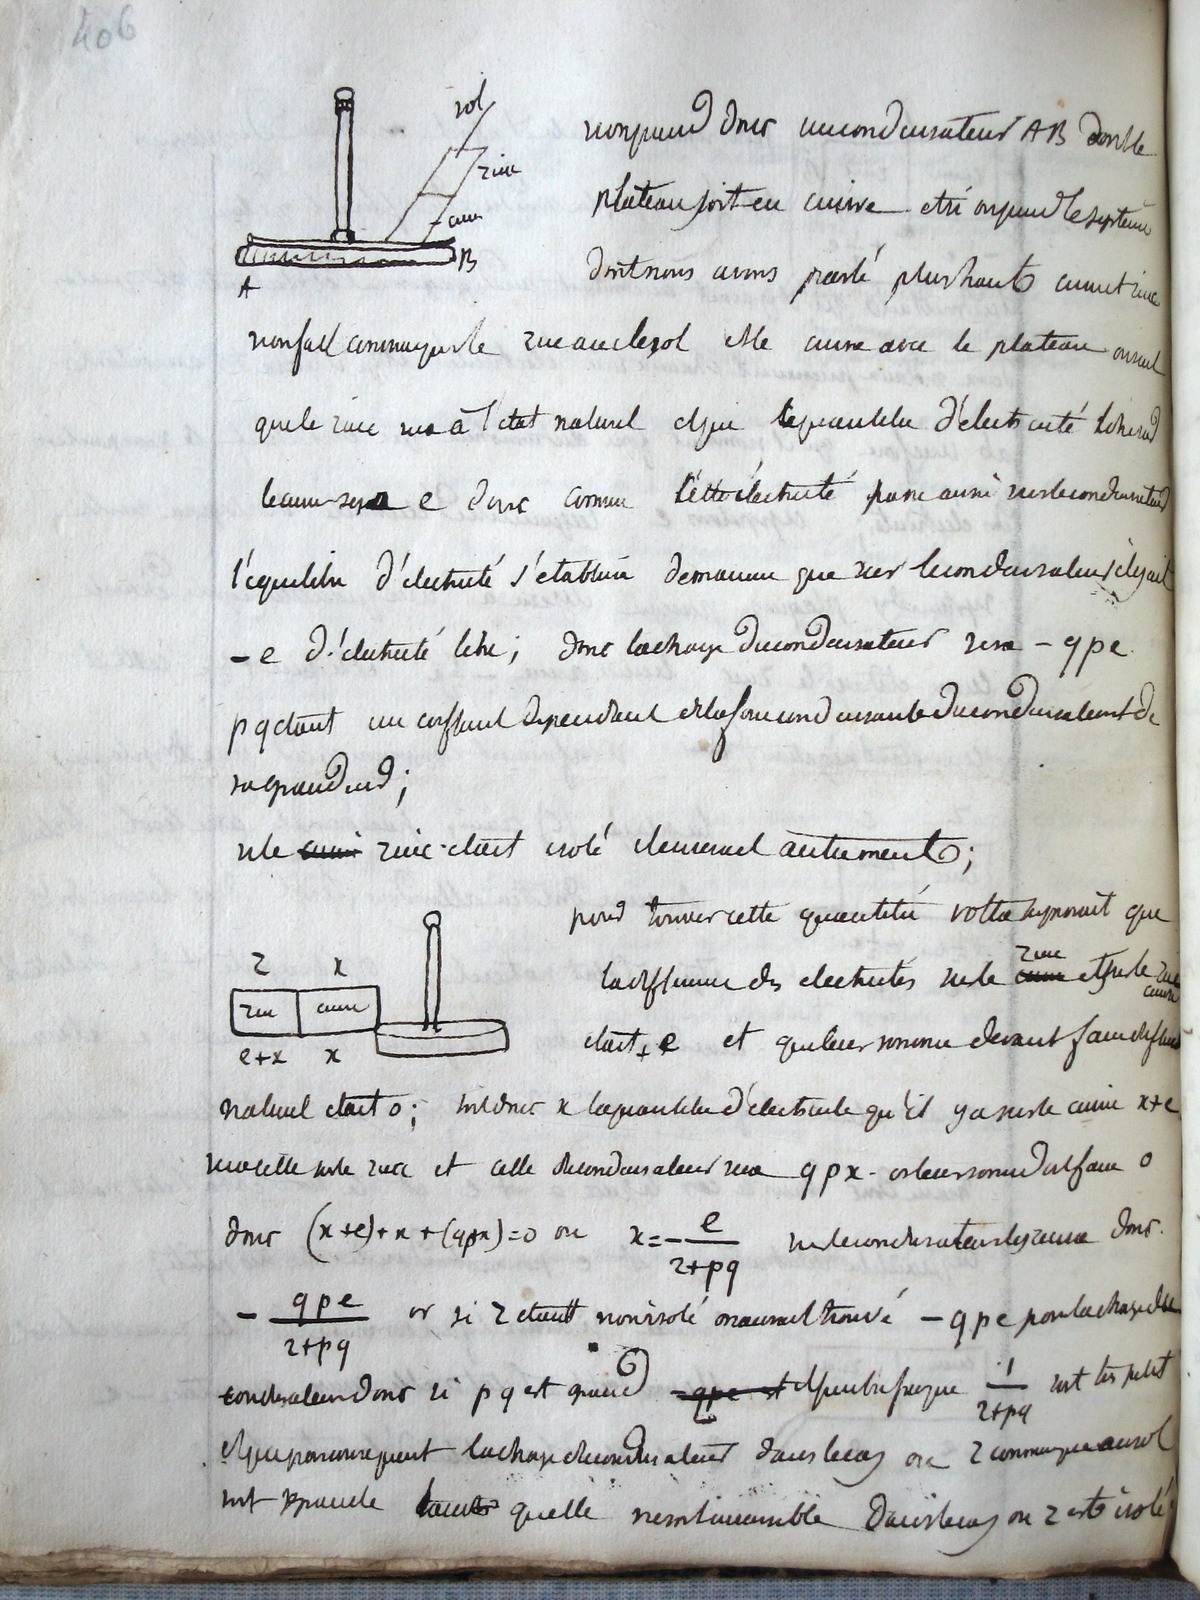 406
sol
zinc
cuiv
A
B
donc un condensateur AB dont le
plateau soit en cuivre et si on prend le système
dont nous avons parlé plus haut cuiv et zinc
le zinc avec le sol et le cuivre avec le plateau on sait
que le zinc sera à l'état naturel et que la quantité d'électricité
le cuiv sera e donc comme cette électricité passe aussi sur le condensateur
l'équilibre d'électricité s'établira de manière que sur le condensateur il y ait
- e d'électricité libre ; donc la charge du condensateur sera - qpe
pq étant un dépendant de la force condensante du condensateur et de
sa grandeur ;
si le cuiv zinc était isolé il en serait autrement ;
pour trouver cette quantité volta supposait que
z x
zinc cuiv
e+x x
la différence des électricités sur le zinc et sur le cuivre
était + e et que leur somme devant
naturel était 0 ; soit donc x la quantité d'électricité qu'il y a sur le cuiv x+e
sera celle sur le zinc et celle du condensateur sera qpx or leur somme doit faire 0
donc (x+e)+x+(qpx)=0 ou x=-e/(2+pq) sur le condensateur donc
- qpe/(2+pq) or si z était non isolé on aurait trouvé - qpe pour la charge du
condensateur donc si pq est grand -qpe 1/(2+pq) soit très petit
et que par conséquent la charge du condensateur dans le cas où z communique au sol
soit grande qu'elle dans le cas où z est isolé